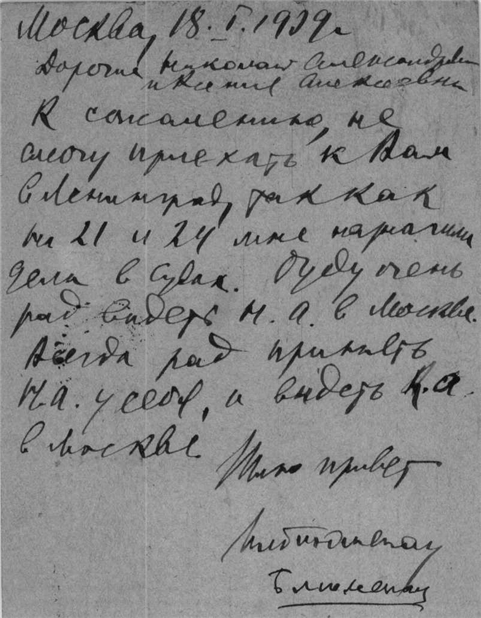 Москва, 18. I. 1939 г.
Дорогие Николай Александрович
и Ксения Алексеевна
К сожалению, не
смогу приехать к Вам
в Ленинград, так как
на 21 и 24 мне назначили
дела в судах. Буду очень
рад видеть Н. А. в Москве.
Всегда рад принять
Н.А. у себя, и видеть К.А.
в Москве
привет